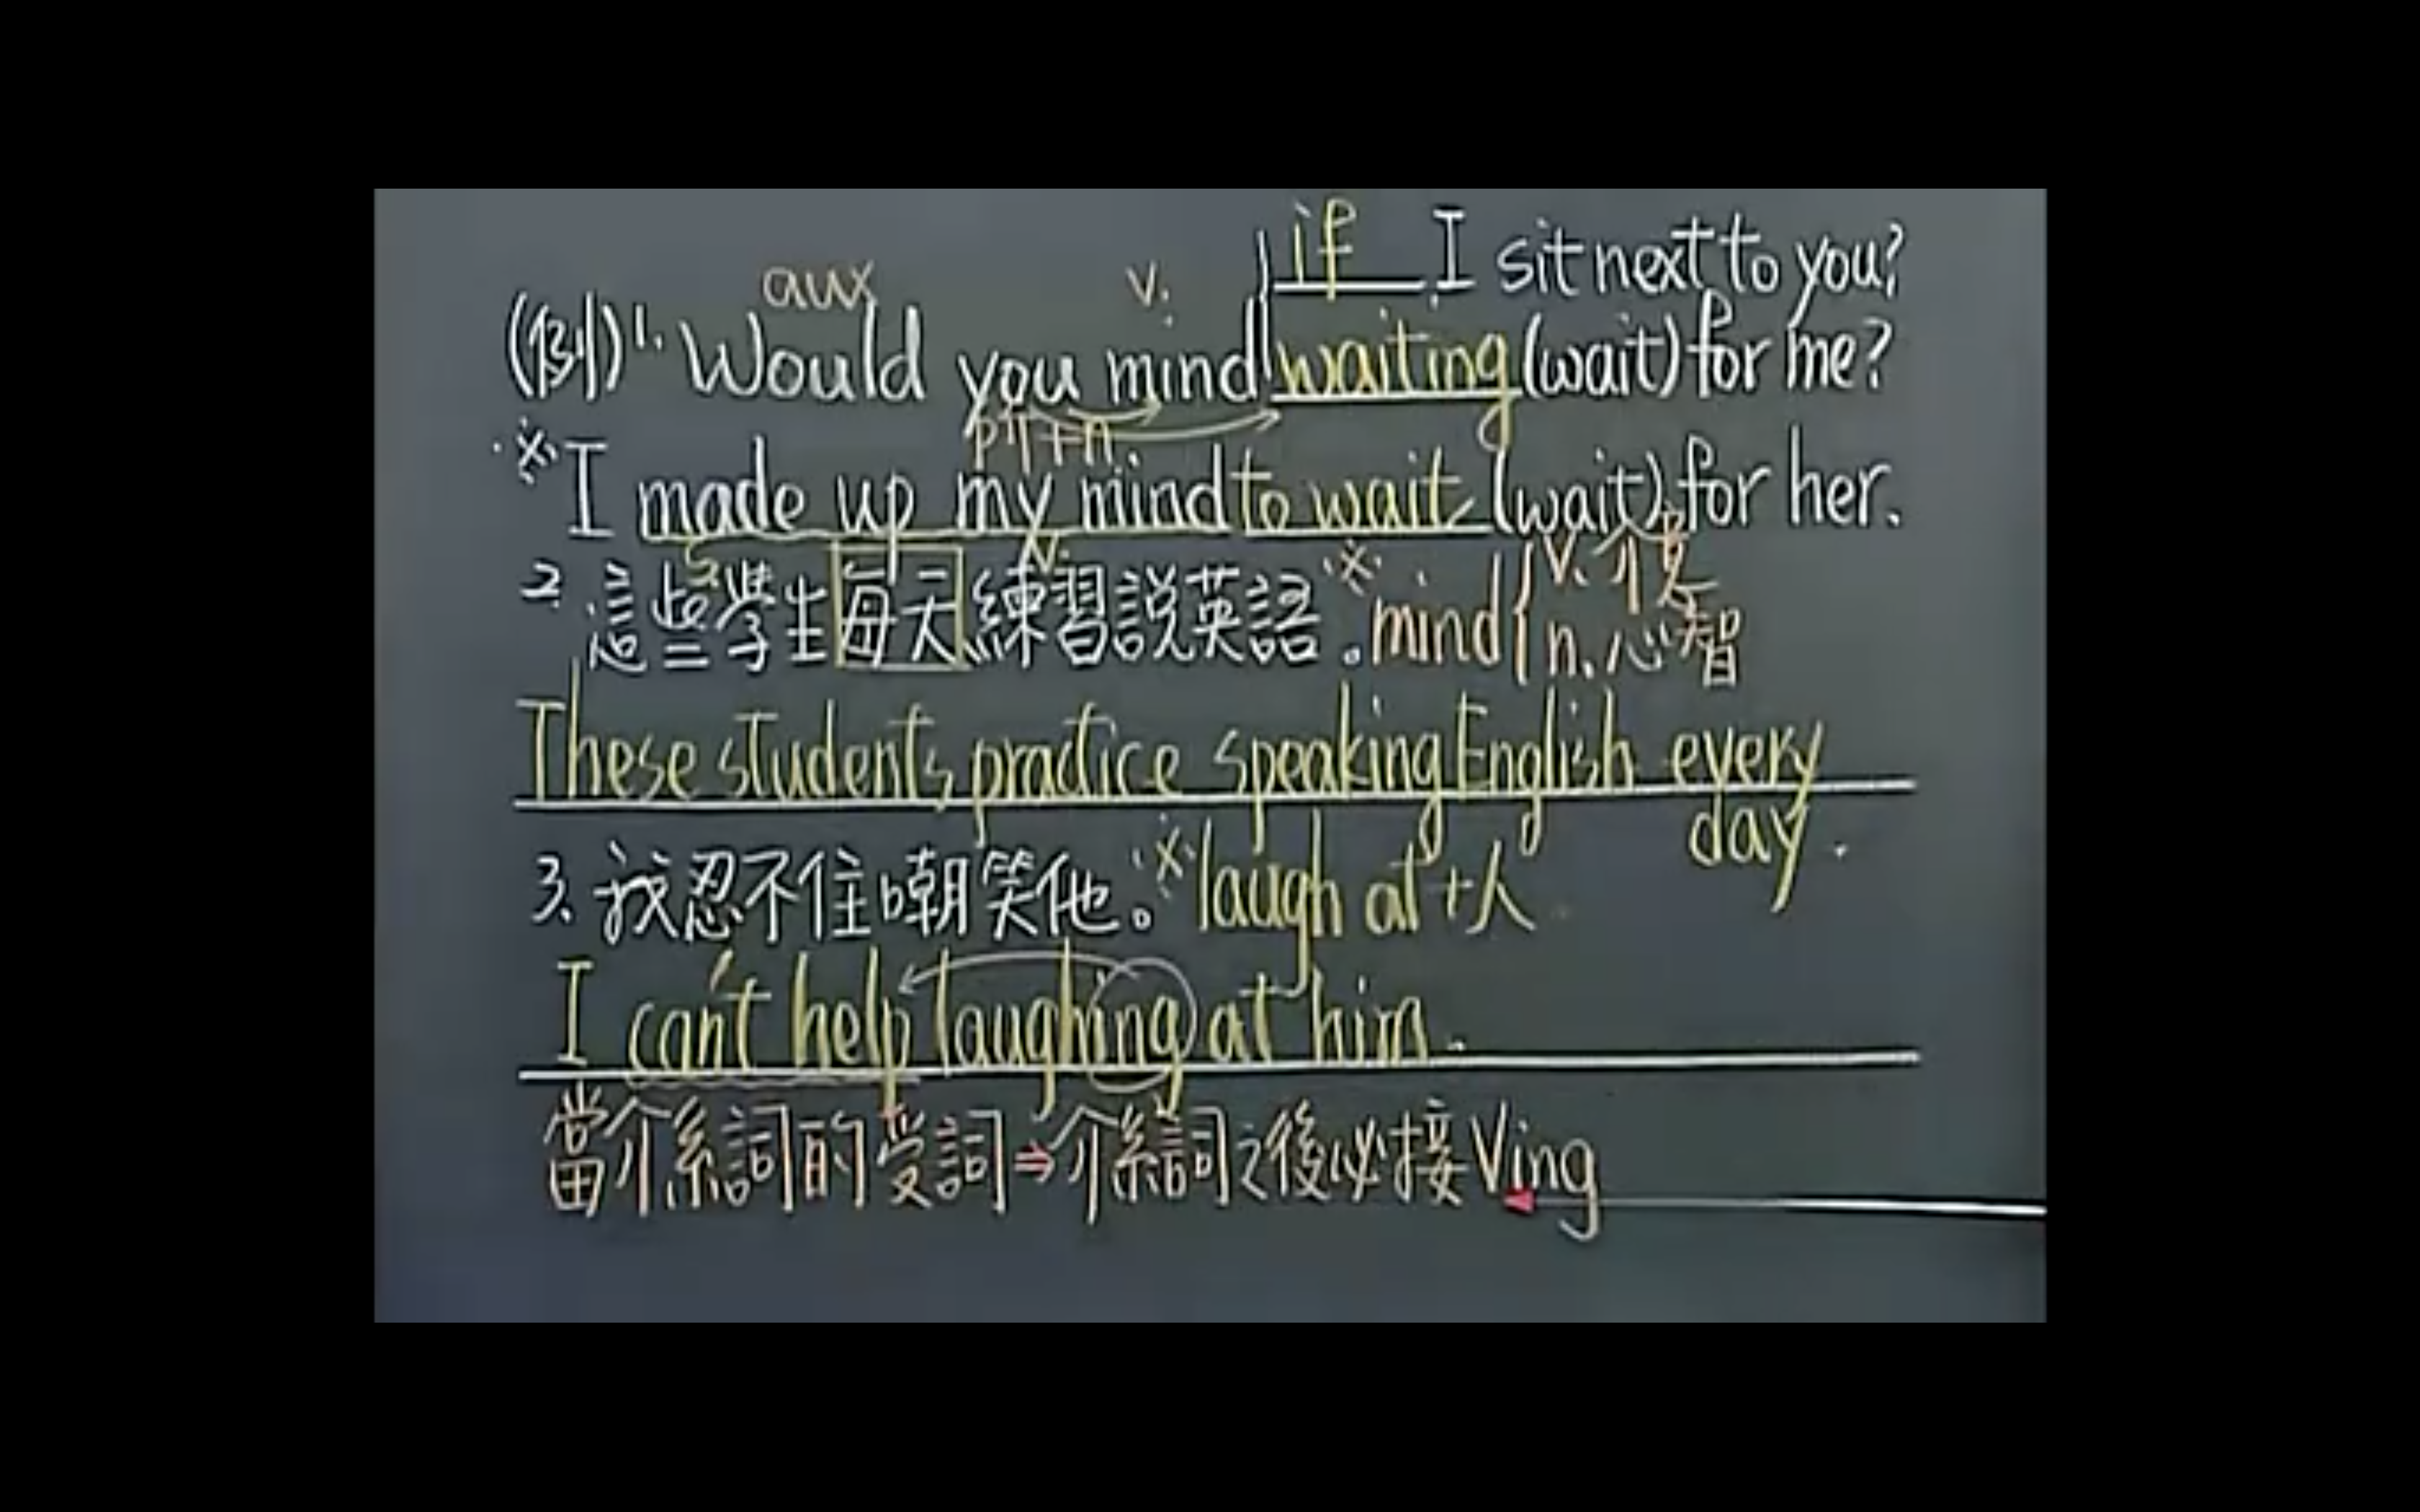 if I sit next to you?
aux v.
(例)1. Would you mind waiting (wait) for me?
所+n.
※ I made up my mind to wait (wait) for her.
2. 這些學生每天練習說英語。※mind { v. 介意
n. 心智
These students practice speaking English every
day.
3. 我忍不住嘲笑他。※laugh at +人
I can't help laughing at him.
當介系詞的受詞⇒介系詞之後必接Ving